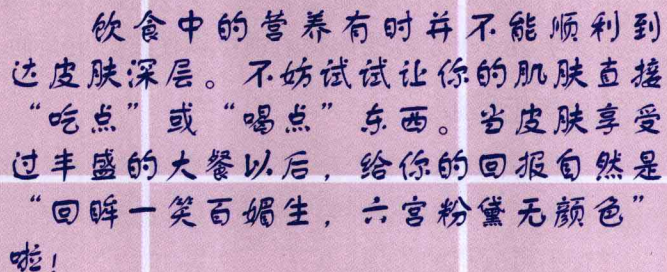 饮食中的营养有时并不能顺利到
达皮肤深层。不妨试试让你的肌肤直接
“吃点”或“喝点”东西。当皮肤享受
过丰盛的大餐以后，给你的回报自然是
“回眸一笑百媚生，六宫粉黛无颜色”
啦！